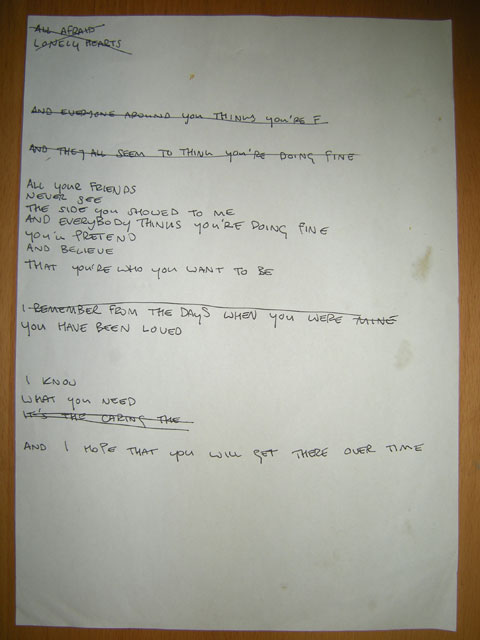 ALL AFRAID
LONELY HEARTS
AND EVERYONE AROUND YOU THINKS YOU'RE F
AND THEY ALL SEEM TO THINK YOU'RE DOING FINE
ALL YOUR FRIENDS
NEVER SEE
THE SIDE YOU SHOWED TO ME
AND EVERYBODY THINKS YOU'RE DOING FINE
YOU'LL PRETEND
AND BELIEVE
THAT YOU'RE WHO YOU WANT TO BE
I REMEMBER FROM THE DAYS WHEN YOU WERE MINE
YOU HAVE BEEN LOVED
I KNOW
WHAT YOU NEED
IT'S THE CARING THE
AND I HOPE THAT YOU WILL GET THERE OVER TIME